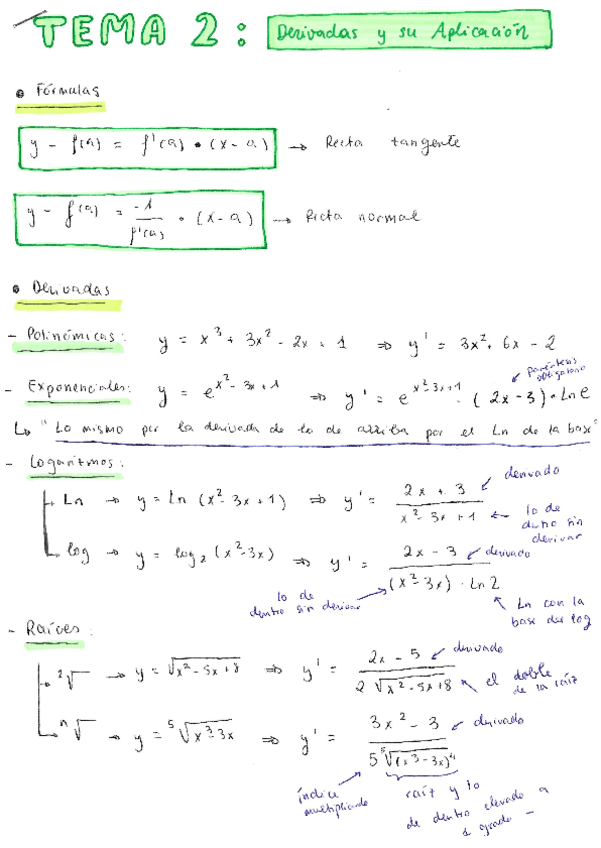 TEMA 2: Derivadas y su Aplicación
• Fórmulas
y - f(a) = f'(a) • (x - a) → Recta tangente
y - f(a) = -1/f'(a) • (x - a) → Recta normal
• Derivadas
- Polinómicas: y = x³ + 3x² - 2x + 1 ⇒ y' = 3x² + 6x - 2
paréntesis obligatorio
- Exponenciales: y = e^(x² - 3x + 1) ⇒ y' = e^(x² - 3x + 1) · (2x - 3) · Ln e
↳ "Lo mismo por la derivada de lo de arriba por el Ln de la base"
- Logaritmos:
Ln → y = Ln (x² - 3x + 1) ⇒ y' = (2x + 3)/(x² - 3x + 1)
derivado
lo de dentro sin derivar
log → y = log₂ (x² - 3x) ⇒ y' = (2x - 3)/((x² - 3x) · Ln 2)
derivado
lo de dentro sin derivar
Ln con la base del log
- Raíces:
²√ → y = √(x² - 5x + 8) ⇒ y' = (2x - 5)/(2√(x² - 5x + 8))
derivado
el doble de la raíz
ⁿ√ → y = ⁵√(x³ - 3x) ⇒ y' = (3x² - 3)/(5 ⁵√((x³ - 3x)⁴))
derivado
índice multiplicando
raíz y lo de dentro elevado a 1 grado -